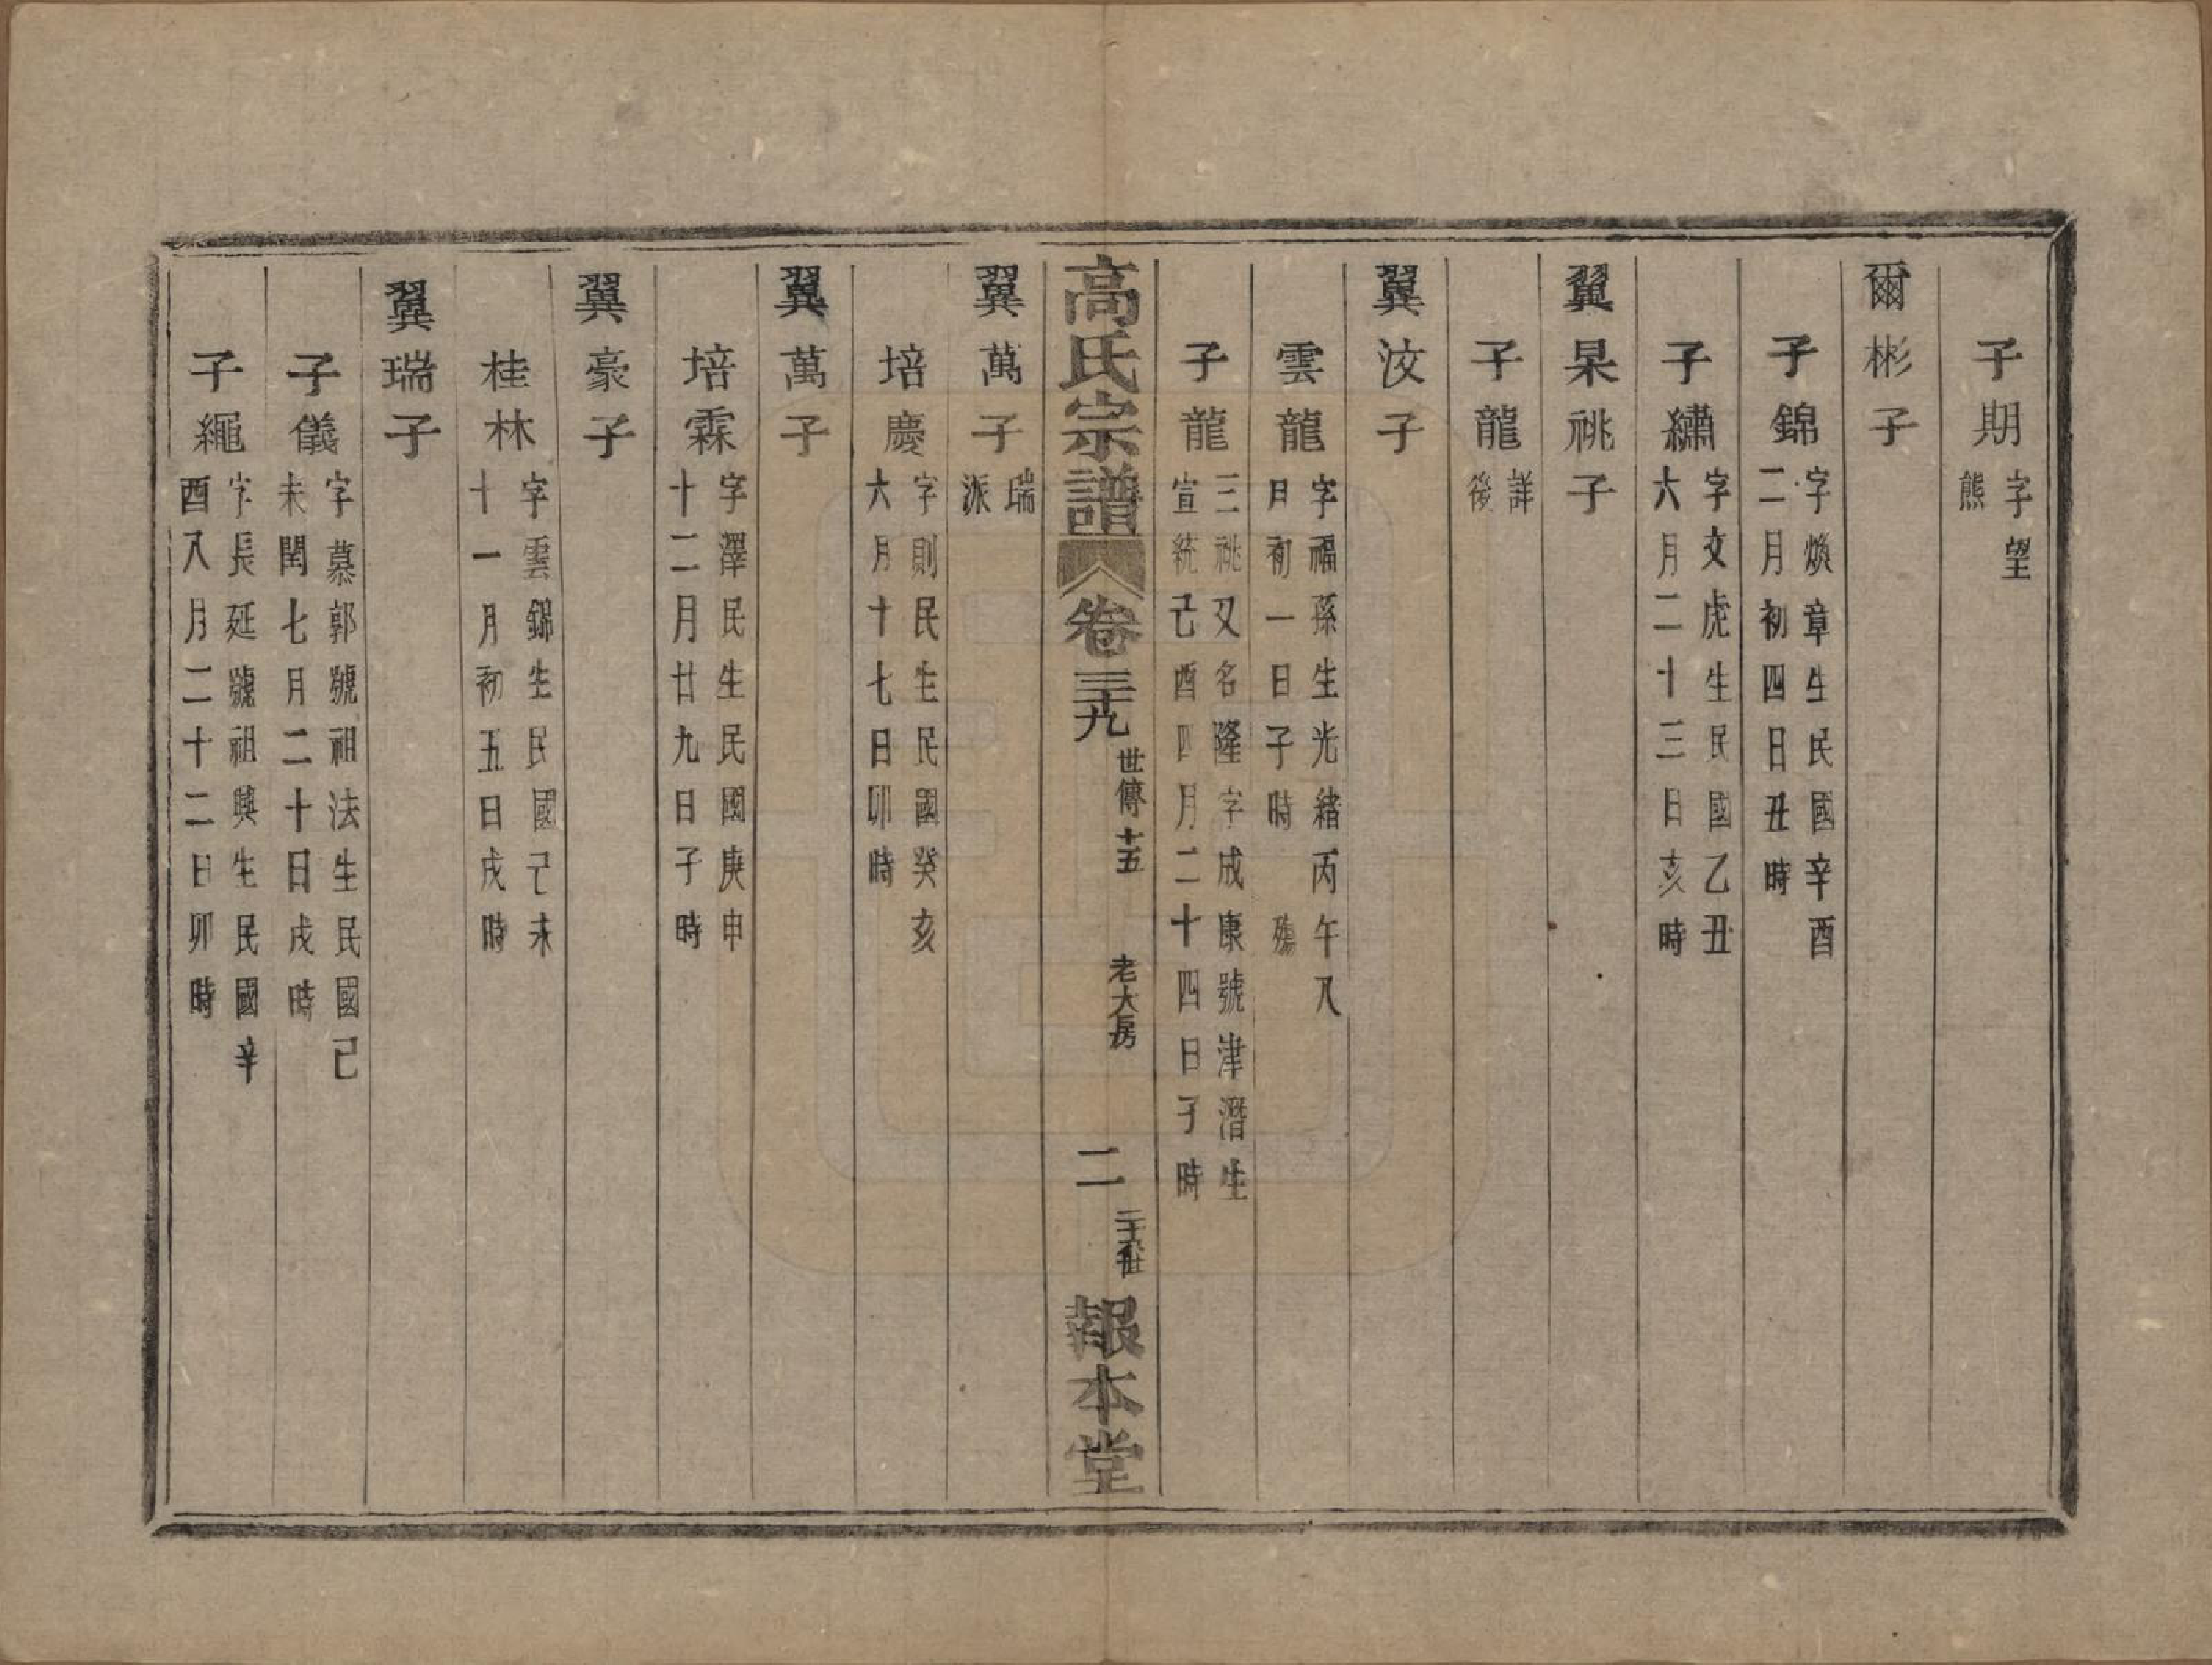 子期字望
熊
爾彬子
子錦字煥章生民國辛酉
二月初四日丑時
子繡字文虎生民國乙丑
六月二十三日亥時
翼杲祧子
子龍詳
後
翼汶子
雲龍字福孫生光緒丙午八
月初一日子時 殤
子龍三祧又名隆字成康號津潛生
宣統己酉四月二十四日子時
高氏宗譜 卷三十九 世傳十五 老大房 二 二十世 報本堂
翼萬子瑞
派
培慶字則民生民國癸亥
六月十七日卯時
翼萬子
培霖字澤民生民國庚申
十二月廿九日子時
翼豪子
桂林字雲錦生民國己未
十一月初五日戌時
翼瑞子
子儀字慕郭號祖法生民國己
未閏七月二十日戌時
子繩字長延號祖興生民國辛
酉八月二十二日卯時